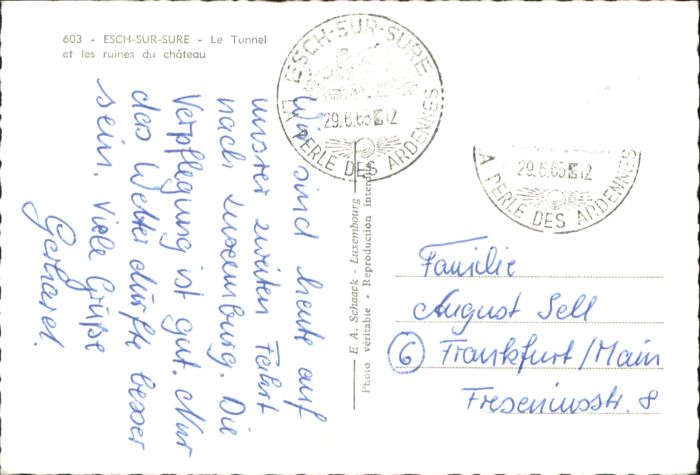 603 - ESCH-SUR-SURE - Le Tunnel
et les ruines du château
ESCH-SUR-SURE
29.6.65 12
LA PERLE DES ARDENNES
29.6.65 12
LA PERLE DES ARDENNES
Wir sind heute auf
unsrer zweiten Fahrt
nach Luxemburg. Die
Verpflegung ist gut. Nur
das Wetter dürfte besser
sein. Viele Grüße
Gerhard.
E. A. Schaack - Luxembourg
Photo véritable - Reproduction interdite
Familie
August Sell
6 Frankfurt/Main
Freseniusstr. 8